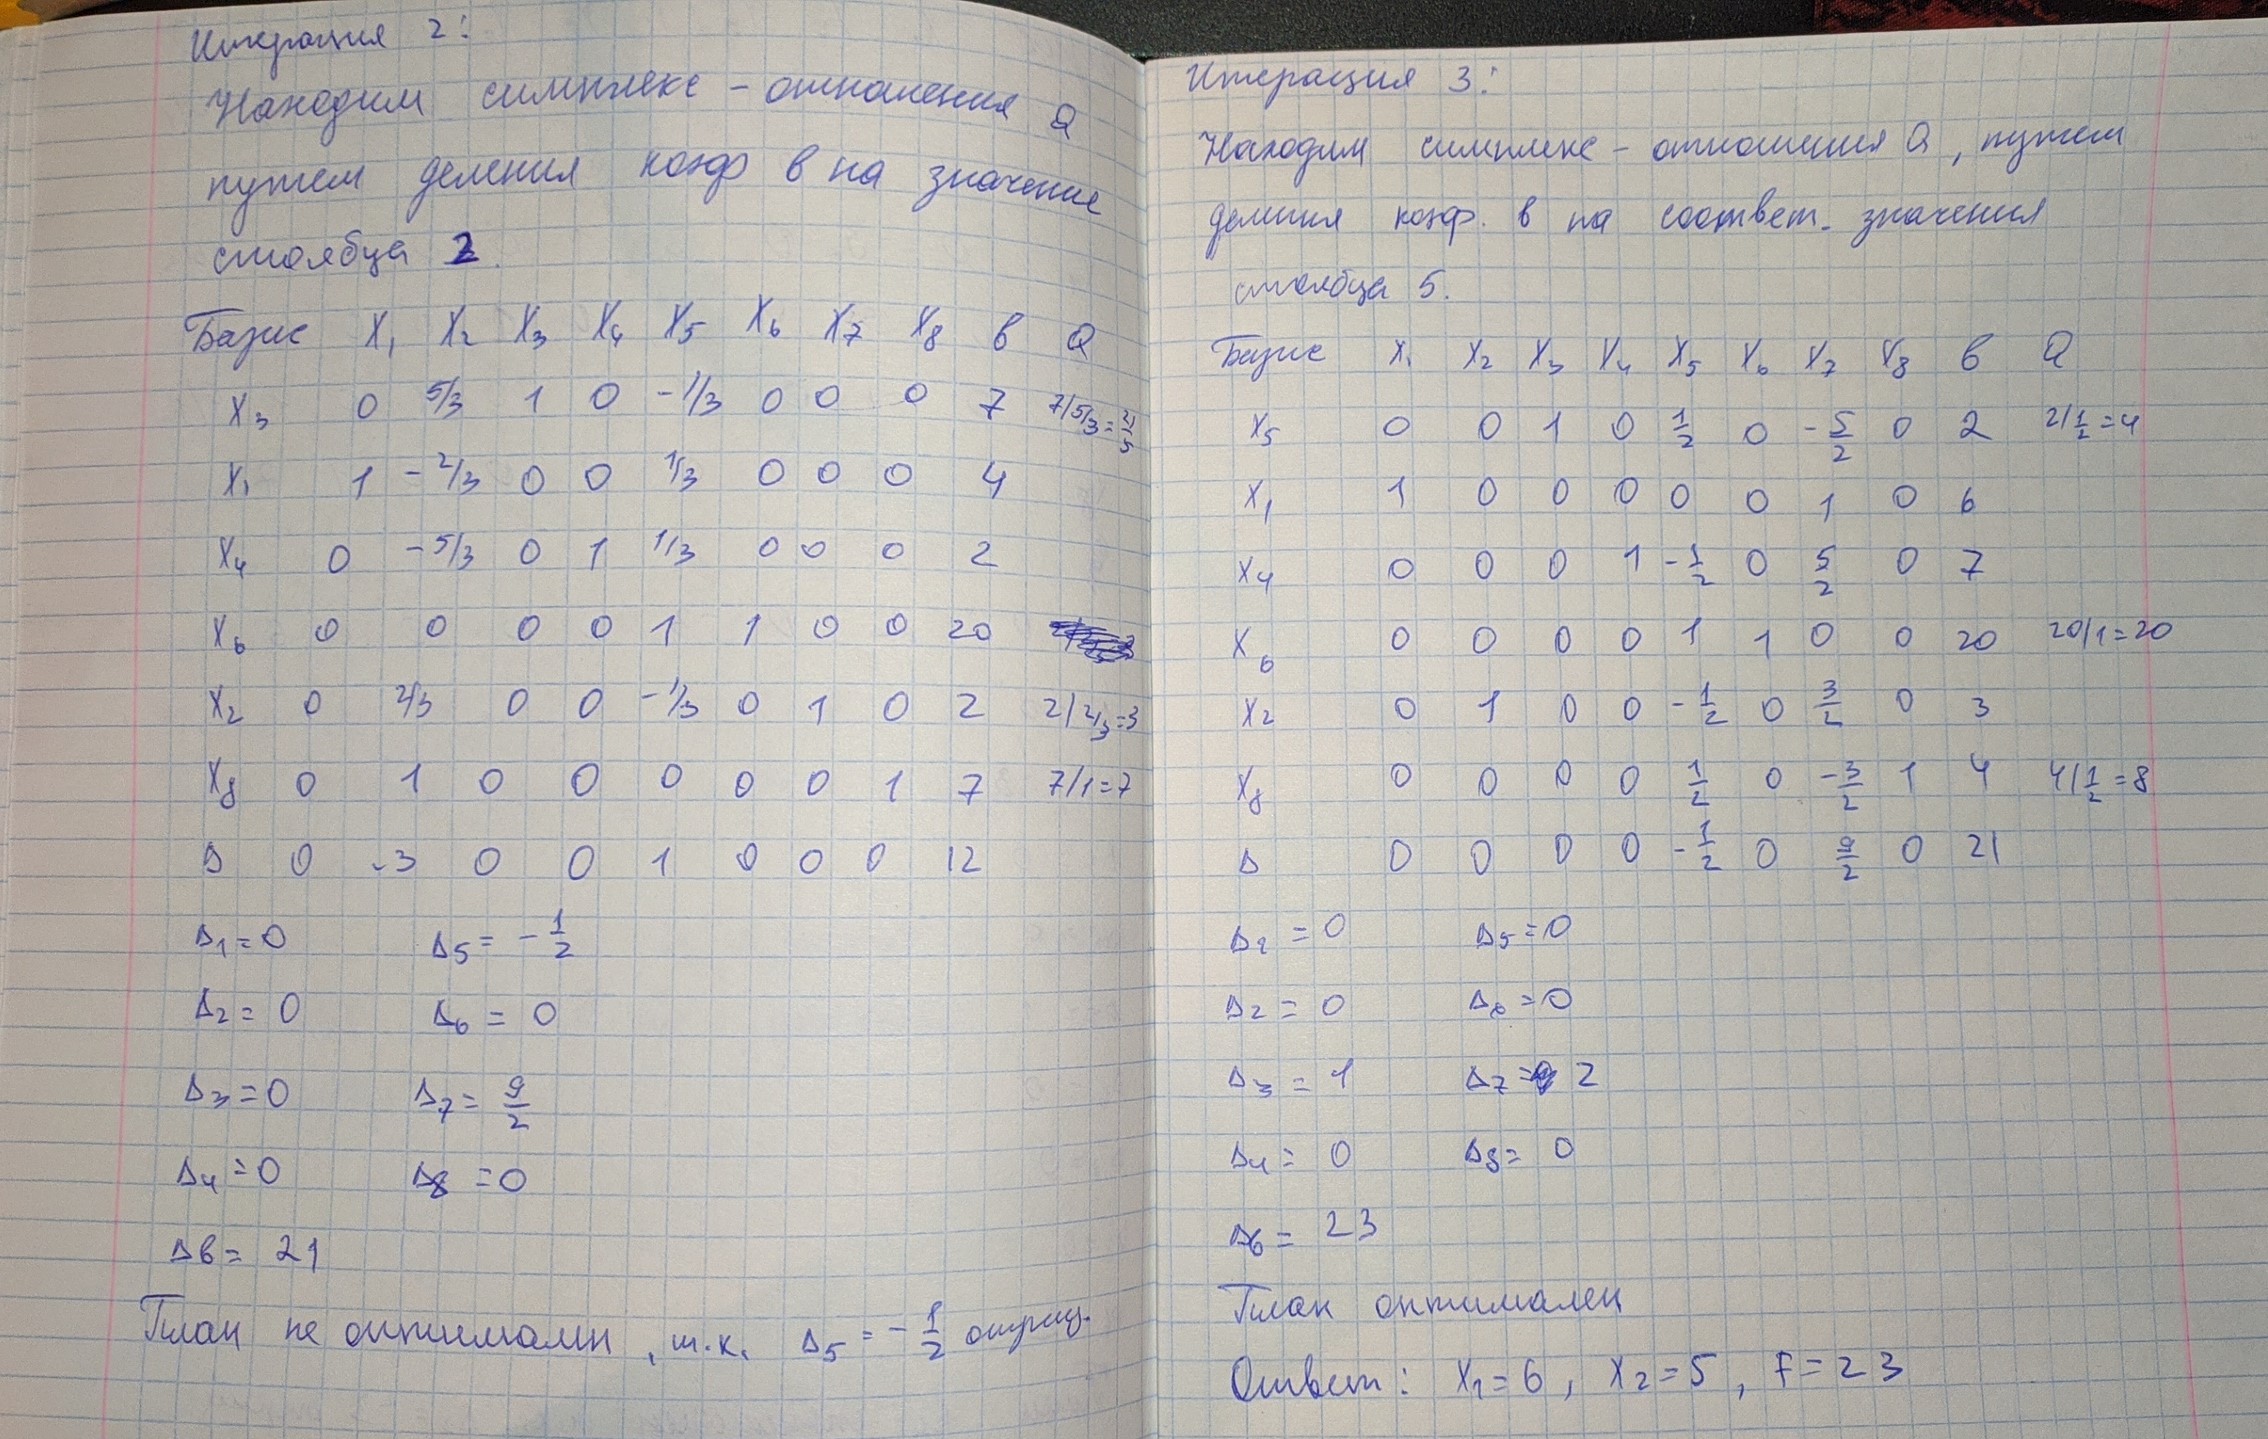 Итерация 2:
Находим симплекс - отношения Q
путем деления коэф в на значение
столбца 2.
Базис X₁ X₂ X₃ X₄ X₅ X₆ X₇ X₈ в Q
X₃ 0 5/3 1 0 -1/3 0 0 0 7 7/5/3=21/5
X₁ 1 -2/3 0 0 1/3 0 0 0 4
X₄ 0 -5/3 0 1 1/3 0 0 0 2
X₆ 0 0 0 0 1 1 0 0 20
X₂ 0 2/3 0 0 -1/3 0 1 0 2 2/2/3=3
X₈ 0 1 0 0 0 0 0 1 7 7/1=7
Δ 0 -3 0 0 1 0 0 0 12
Δ₁=0 Δ₅= -1/2
Δ₂=0 Δ₆=0
Δ₃=0 Δ₇=9/2
Δ₄=0 Δ₈=0
Δв=21
План не оптимален, т.к. Δ₅=-1/2 отриц.
Итерация 3:
Находим симплекс - отношения Q, путем
деления коэф. в на соответ. значения
столбца 5.
Базис X₁ X₂ X₃ X₄ X₅ X₆ X₇ X₈ в Q
X₅ 0 0 1 0 1/2 0 -5/2 0 2 2/1/2=4
X₁ 1 0 0 0 0 0 1 0 6
X₄ 0 0 0 1 -1/2 0 5/2 0 7
X₆ 0 0 0 0 1 1 0 0 20 20/1=20
X₂ 0 1 0 0 -1/2 0 3/2 0 3
X₈ 0 0 0 0 1/2 0 -3/2 1 4 4/1/2=8
Δ 0 0 0 0 -1/2 0 9/2 0 21
Δ₂=0 Δ₅=0
Δ₂=0 Δ₆=0
Δ₃=1 Δ₇=2
Δ₄=0 Δ₈=0
Δв=23
План оптимален
Ответ: X₁=6, X₂=5, F=23